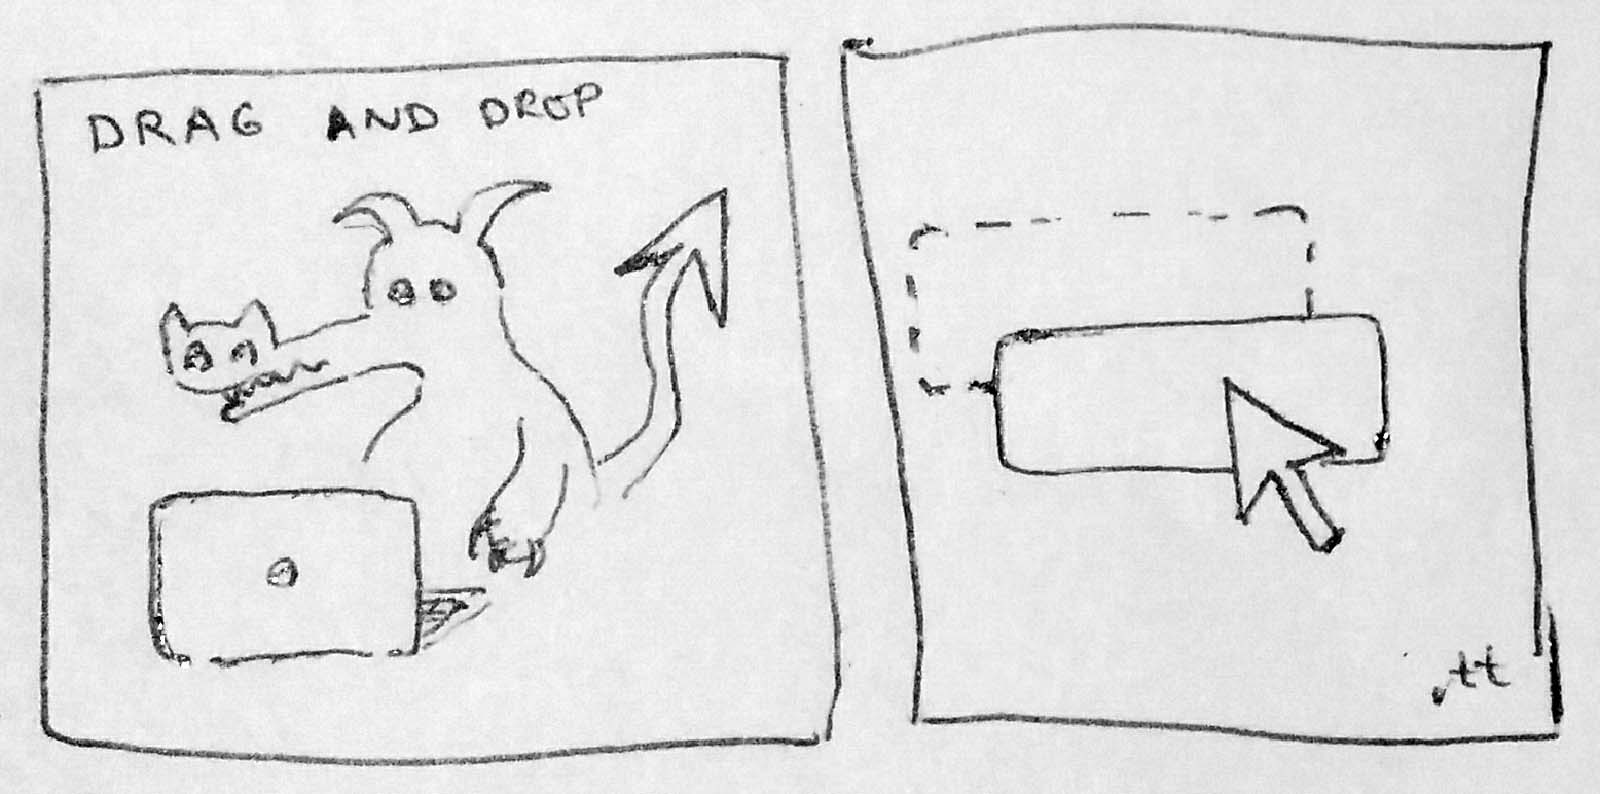 DRAG AND DROP
.tt